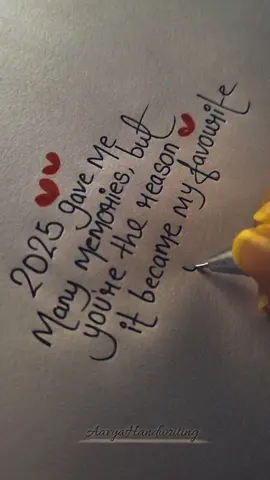 2025 gave me
Many memories, but
you're the reason
it became my favourite
AaryaHandwriting